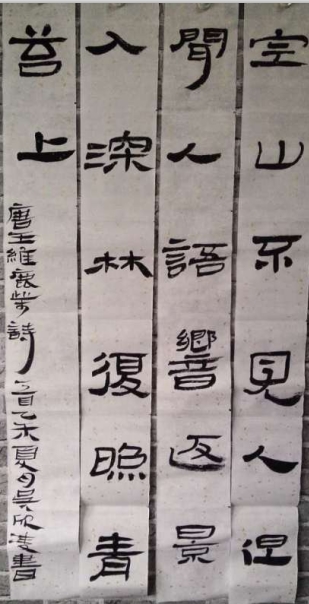 空山不見人但
聞人語響返景
入深林復照青
苔上
唐王維鹿柴詩一首乙未夏月吳欣凌書